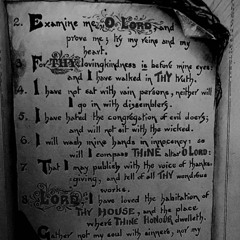 2. Examine me, O LORD, and
prove me; try my reins and my
heart.
3. For THY lovingkindness is before mine eyes:
and I have walked in THY truth.
4. I have not sat with vain persons, neither will
I go in with dissemblers.
5. I have hated the congregation of evil doers;
and will not sit with the wicked.
6. I will wash mine hands in innocency: so
will I compass THINE altar O LORD:
7. THAT I may publish with the voice of thanks-
giving, and tell of all THY wondrous
works.
8. LORD, I have loved the habitation of
THY HOUSE, and the place
where THINE HONOUR dwelleth.
Gather not my soul with sinners, nor my